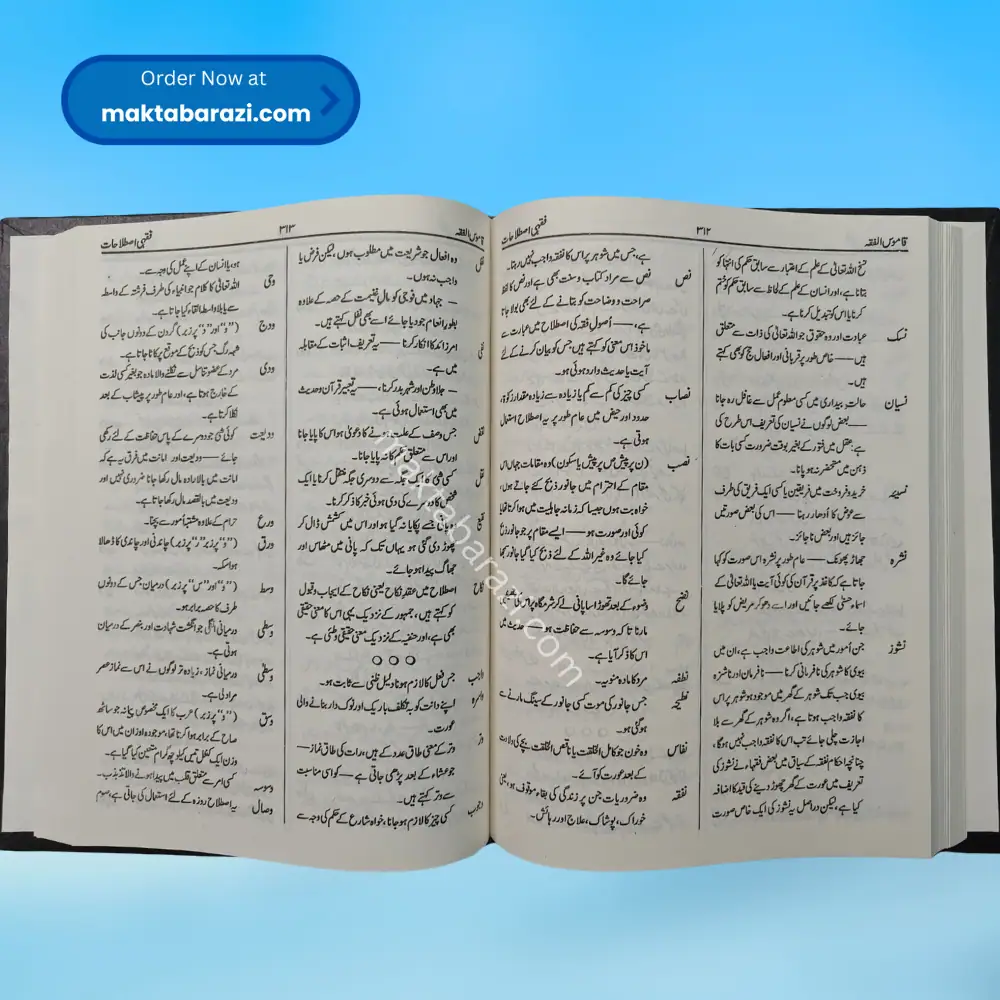 Order Now at
maktabarazi.com
قاموس الفقہ
۳۱۲
فقہی اصطلاحات
نسخ اللہ تعالیٰ کے علم کے اعتبار سے سابق حکم کی انتہا کو
بتانا ہے، اور انسان کے علم کے لحاظ سے سابق حکم کو ختم
کرنا یا اس کو تبدیل کرنا ہے۔
نسک
عبادت اور وہ حقوق جو اللہ تعالیٰ کی ذات سے متعلق
ہیں — خاص طور پر قربانی اور افعال حج کو بھی کہتے
ہیں۔
نسیان
حالت بیداری میں کسی معلوم عمل سے غافل رہ جانا
— بعض لوگوں نے نسیان کی تعریف اس طرح کی
ہے: عقل میں فتور کے بغیر بوقت ضرورت کسی بات کا
ذہن میں متحضر نہ ہو پانا۔
نسیئہ
خرید و فروخت میں فریقین یا کسی ایک فریق کی طرف
سے عوض کا اُدھار رہنا — اس کی بعض صورتیں
جائز ہیں اور بعض ناجائز۔
نشرہ
جھاڑ پھونک — عام طور پر نشرہ اس صورت کو کہا
جاتا ہے کہ کاغذ پر قرآن کی کوئی آیت یا اللہ تعالیٰ کے
اسماء حسنیٰ لکھے جائیں اور اسے دھو کر مریض کو پلایا
جائے۔
نشوز
جن اُمور میں شوہر کی اطاعت واجب ہے، ان میں
بیوی کا شوہر کی نافرمانی کرنا — نافرمان اور ناشزہ
بیوی جب تک شوہر کے گھر میں موجود ہو شوہر پر اس
کا نفقہ واجب ہوتا ہے، اگر وہ شوہر کے گھر سے بلا
اجازت چلی جائے تب اس کا نفقہ واجب نہیں ہوگا،
چنانچہ احکام نفقہ کے سیاق میں بعض فقہاء نے نشوز کی
تعریف میں عورت کے گھر چھوڑ دینے کی قید کا اضافہ
کیا ہے، لیکن دراصل یہ نشوز کی ایک خاص صورت
ہے، جس میں شوہر پر اس کا نفقہ واجب نہیں رہتا۔
نص
نص سے مراد کتاب و سنت بھی ہے اور نص کا لفظ
صراحت و وضاحت کو بتانے کے لئے بھی بولا جاتا
ہے، — اُصول فقہ کی اصطلاح میں عبارت سے
ماخوذ اس معنی کو کہتے ہیں، جس کو بیان کرنے کے لئے
آیت یا حدیث وارد ہوئی ہو۔
نصاب
کسی چیز کی کم سے کم یا زیادہ سے زیادہ مقدار، زکوٰۃ،
حدود اور حیض میں عام طور پر یہ اصطلاح استعمال
ہوتی ہے۔
نصب
(ن پر پیش ص پر پیش یا سکون) وہ مقامات جہاں اس
مقام کے احترام میں جانور ذبح کئے جاتے ہوں،
خواہ بت ہوں جیسا کہ زمانہ جاہلیت میں ہوا کرتا تھا یا
کوئی اور صورت ہو — ایسے مقام پر جو جانور ذبح
کیا جائے وہ غیر اللہ کے لئے ذبح کیا گیا جانور کہا
جائے گا۔
نضح
وضوء کے بعد تھوڑا سا پانی لے کر شرمگاہ پر اس کی چھینٹیں
مارنا تاکہ وسوسہ سے حفاظت ہو — حدیث میں
اس کا ذکر آیا ہے۔
نطفہ
مرد کا مادہ منویہ۔
نطیحہ
جس جانور کی موت کسی جانور کے سینگ مارنے سے
ہوگئی ہو۔
نفاس
وہ خون جو کامل الخلقت یا ناقص الخلقت بچے کی ولادت
کے بعد عورت کو آئے۔
نفقہ
وہ ضروریات جن پر زندگی کی بقاء موقوف ہو، یعنی
خوراک، پوشاک، علاج اور رہائش۔
قاموس الفقہ
۳۱۳
فقہی اصطلاحات
نفل
وہ افعال جو شریعت میں مطلوب ہوں، لیکن فرض یا
واجب نہ ہوں۔
— جہاد میں فوجی کو مال غنیمت کے حصہ کے علاوہ
بطور انعام جو دیا جائے اسے بھی نفل کہتے ہیں۔
نفی
امر زائد کا انکار کرنا — یہ تعریف اثبات کے مقابلہ
میں ہے۔
— جلاوطن اور شہر بدر کرنا، — یہ تعبیر قرآن و حدیث
میں بھی استعمال ہوئی ہے۔
نقض
جس وصف کے علت ہونے کا دعویٰ ہو اس کا پایا جانا
اور اس سے متعلق حکم کا نہ پایا جانا۔
نقل
کسی شئ کا ایک جگہ سے دوسری جگہ منتقل کرنا یا ایک
شخص کا دوسرے کی دی ہوئی خبر کا ذکر کرنا۔
نقیع
وہ پانی جسے پکایا نہ گیا ہو اور اس میں کشمش ڈال کر
چھوڑ دی گئی ہو یہاں تک کہ پانی میں مٹھاس اور
جھاگ پیدا ہو جائے۔
نکاح
اصطلاح میں عقد نکاح یعنی نکاح کے ایجاب و قبول
کو کہتے ہیں، جمہور کے نزدیک یہی اس کا معنی حقیقی
بھی ہے، اور حنفیہ کے نزدیک معنی حقیقی وطئ ہے۔
○○○
واجب
جس فعل کا لازم ہونا دلیل ظنی سے ثابت ہو۔
واشرہ
اپنے دانت کو بہ تکلف باریک اور نوک دار بنانے والی
عورت۔
وتر
وتر کے معنی طاق عدد کے ہیں، رات کی طاق نماز —
جو عشاء کے بعد پڑھی جاتی ہے — کو اسی مناسبت
سے وتر کہتے ہیں۔
وجوب
کسی چیز کا لازم ہو جانا، خواہ شارع کے حکم کی وجہ سے
ہو، یا انسان کے اپنے عمل کی وجہ سے۔
وحی
اللہ تعالیٰ کا کلام جو انبیاء کی طرف فرشتہ کے واسطہ
سے یا بلا واسطہ القاء کیا جاتا ہے۔
ودج
("و" اور "د" پر زبر) گردن کے دونوں جانب کی
شہہ رگ جس کو ذبح کے موقع پر کاٹا جاتا ہے۔
ودی
مرد کے عضو تناسل سے نکلنے والا مادہ جو بغیر کسی لذت
کے خارج ہوتا ہے، اور عام طور پر پیشاب کے بعد
نکلا کرتا ہے۔
ودیعت
کوئی شئ جو دوسرے کے پاس حفاظت کے لئے رکھی
جائے — ودیعت اور امانت میں فرق یہ ہے کہ
امانت میں بالارادہ مال رکھا جانا ضروری نہیں اور
ودیعت میں بالقصد مال رکھا جاتا ہے۔
ورع
حرام کے علاوہ مشتبہ اُمور سے بچنا۔
ورق
("و" پر زبر، "ر" پر زیر) چاندنی اور چاندی کا ڈھالا
ہوا سکہ۔
وسط
("و" اور "س" پر زبر) درمیان جس کے دونوں
طرف کا حصہ برابر ہو۔
وسطی
درمیانی انگلی جو انگشت شہادت اور بنصر کے درمیان
ہوتی ہے۔
وسطیٰ
درمیانی نماز، زیادہ تر لوگوں نے اس سے نماز عصر
مراد لی ہے۔
وسق
("و" پر زبر) عرب کا ایک مخصوص پیمانہ جو ساٹھ
صاع کے برابر ہوا کرتا تھا، موجودہ اوزان میں اس کا
وزن ایک کنٹل تیس کیلو چھ گرام متعین کیا گیا ہے۔
وسوسہ
کسی امر سے متعلق قلب میں پیدا ہونے والا تذبذب۔
وصال
یہ اصطلاح روزہ کے لئے استعمال کی جاتی ہے، صوم
maktabarazi.com